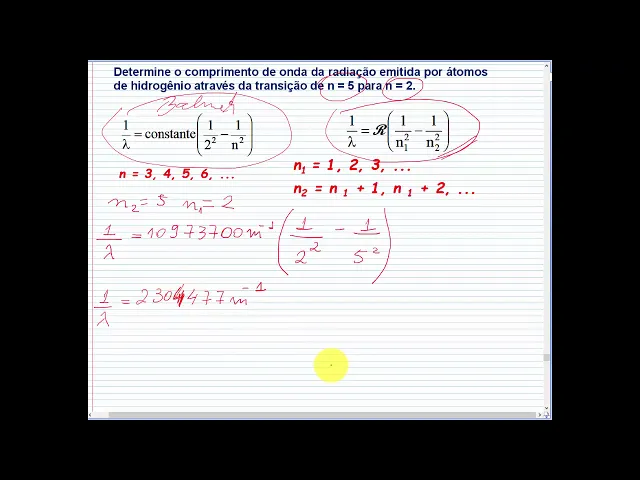 Determine o comprimento de onda da radiação emitida por átomos
de hidrogênio através da transição de n = 5 para n = 2.
Balmer
1/λ = constante(1/2² − 1/n²)
1/λ = ℛ(1/n₁² − 1/n₂²)
n = 3, 4, 5, 6, ...
n₁ = 1, 2, 3, ...
n₂ = n ₁ + 1, n ₁ + 2, ...
n₂ = 5 n₁ = 2
1/λ = 10973700 m⁻¹ (1/2² − 1/5²)
1/λ = 2304477 m⁻¹